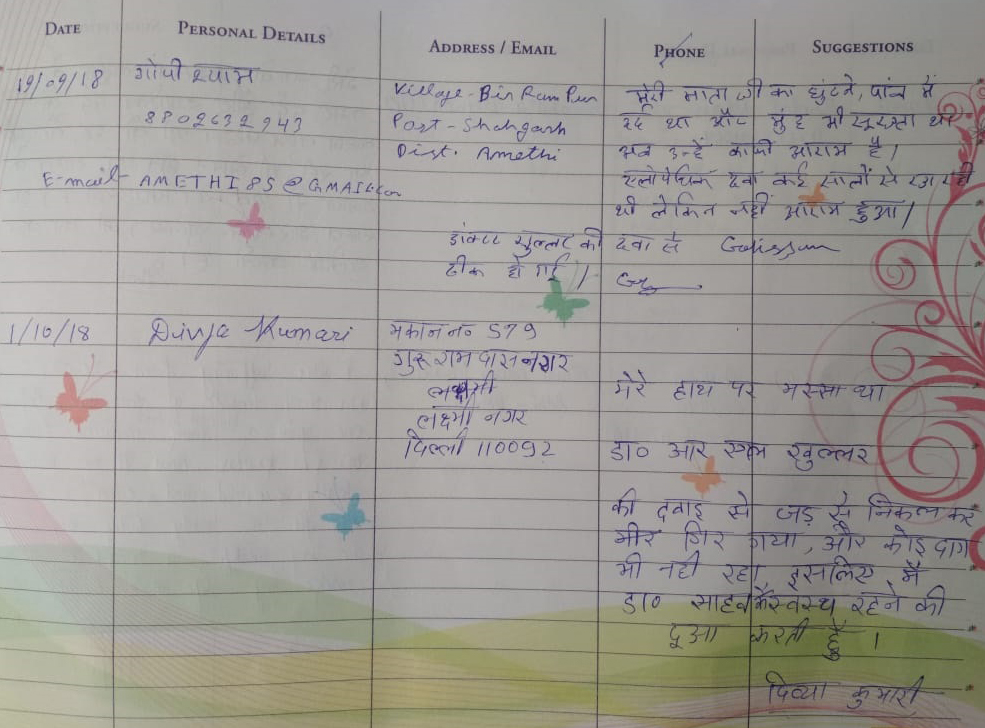 DATE PERSONAL DETAILS ADDRESS / EMAIL PHONE SUGGESTIONS
19/09/18 गोपी श्याम
8802632943
E-mail- AMETHI85@GMAIL.Com
Village- Bir Ram Pur
Post- Shahgarh
Dist. Amethi
मेरी माता जी का घुटने, पांव में
दर्द था और मुंह भी सूखता था
अब उन्हें काफी आराम है।
एलोपैथिक दवा कई सालों से खा रही
थी लेकिन नहीं आराम हुआ।
डॉक्टर खुल्लर की दवा से
ठीक हो गई॥
1/10/18 Divya Kumari
मकान न० 579
गुरु राम दास नगर
लक्ष्मी नगर
दिल्ली 110092
मेरे हाथ पर मस्सा था
डा० आर एल खुल्लर
की दवाइ से जड़ से निकल कर
गिर गया, और कोइ दाग
भी नही रहा, इसलिए मैं
डा० साहब के स्वस्थ रहने की
दूआ करती हूँ ।
दिव्या कुमारी